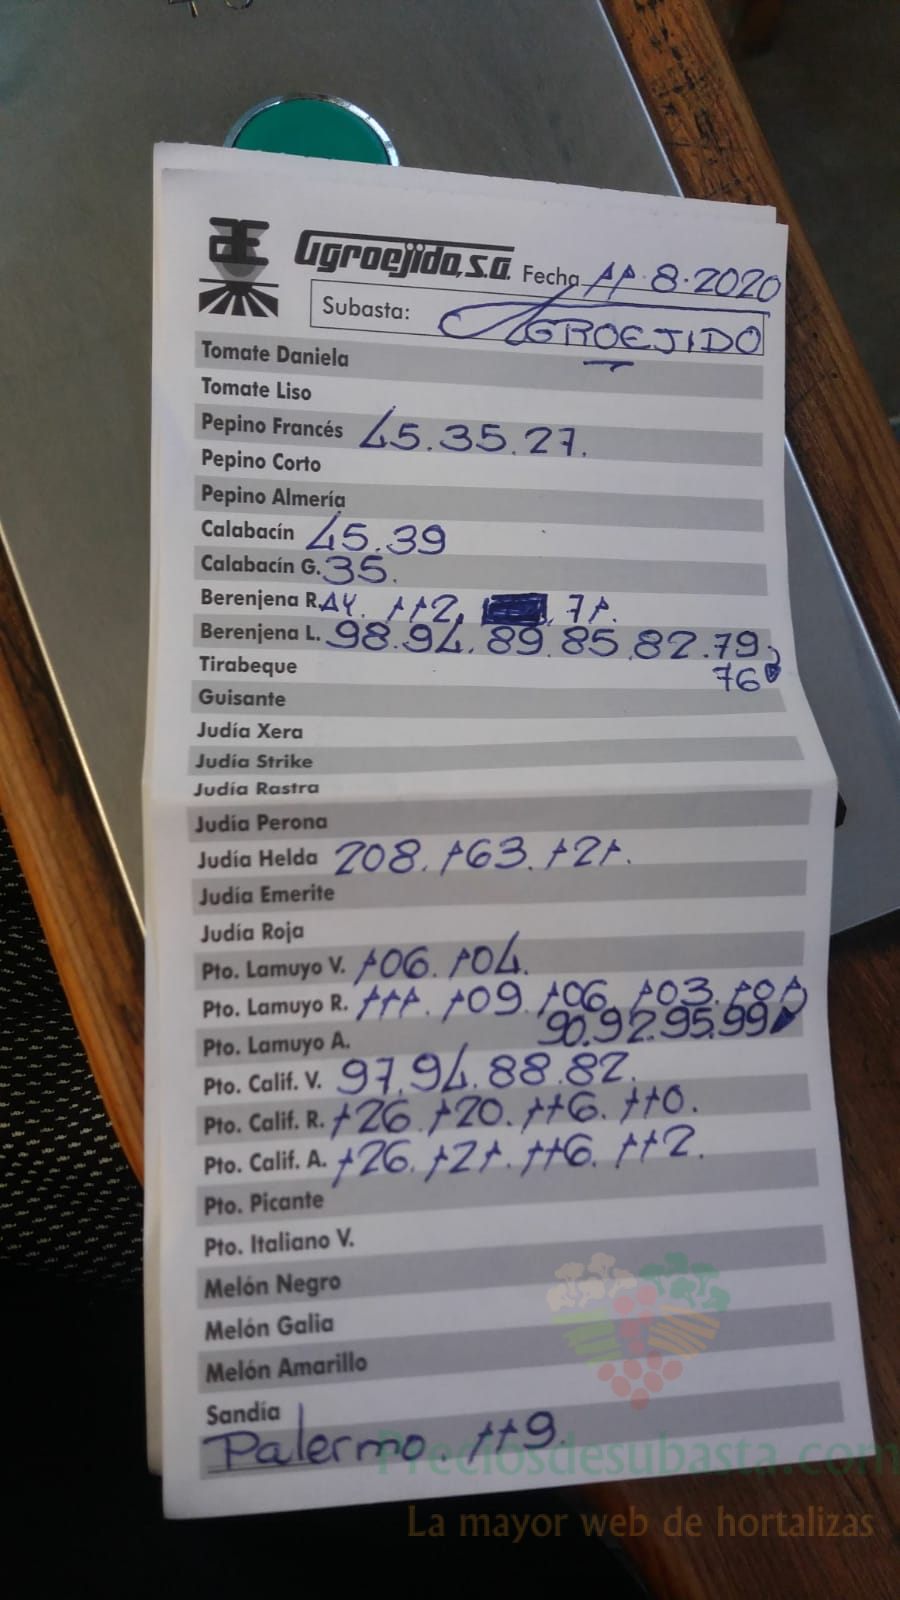 Agroejido, s.a. Fecha 11.8.2020
Subasta: AGROEJIDO
Tomate Daniela
Tomate Liso
Pepino Francés 45.35.27.
Pepino Corto
Pepino Almería
Calabacín 45.39
Calabacín G. 35.
Berenjena R. 112. 71.
Berenjena L. 98.94.89.85.82.79
Tirabeque 76
Guisante
Judía Xera
Judía Strike
Judía Rastra
Judía Perona
Judía Helda 208.163.121.
Judía Emerite
Judía Roja
Pto. Lamuyo V. 106.104.
Pto. Lamuyo R. 111.109.106.103.101
Pto. Lamuyo A. 90.92.95.99
Pto. Calif. V. 97.94.88.82.
Pto. Calif. R. 126.120.116.110.
Pto. Calif. A. 126.121.116.112.
Pto. Picante
Pto. Italiano V.
Melón Negro
Melón Galia
Melón Amarillo
Sandía
Palermo. 119
Preciosdesubasta.com
La mayor web de hortalizas